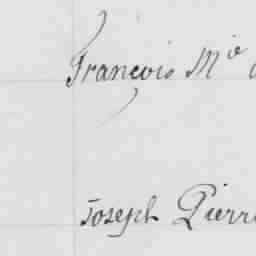 François Mie
Joseph Pierr